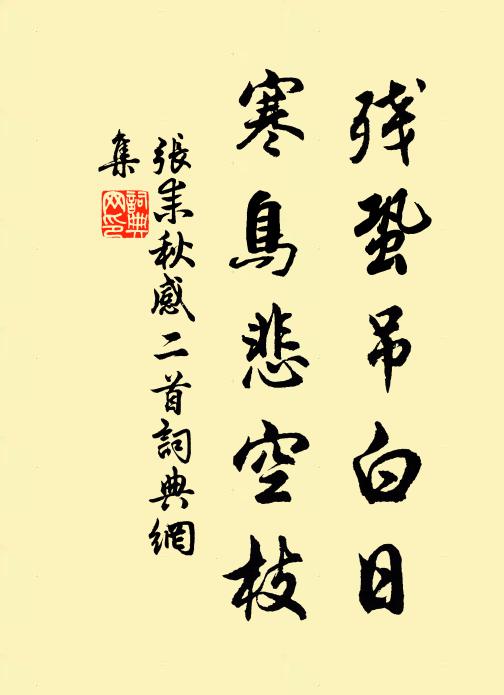 残蛩吊白日
寒鳥悲空枝
張耒秋感二首詞典網
集
詞典
网印